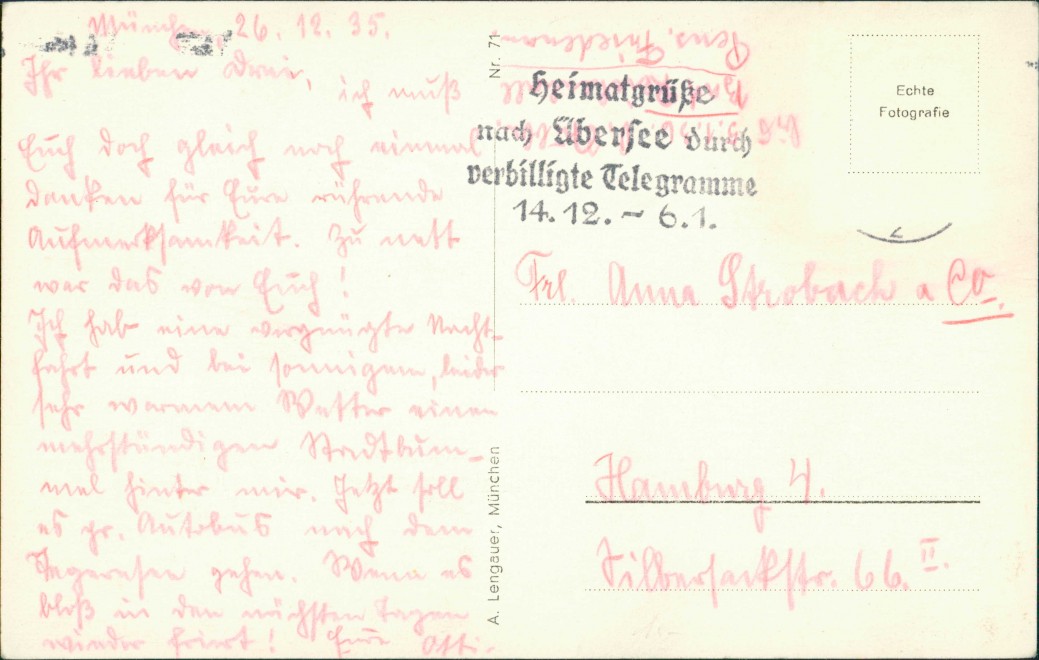 München, 26. 12. 35.
Ihr lieben Drei,
ich muß
Euch doch gleich noch einmal
danken für Eure rührende
Aufmerksamkeit. Zu nett
war das von Euch!
Ich hab eine vergnügte Nacht-
fahrt und bei sonnigem, leider
sehr warmem Wetter einen
mehrstündigen Stadtbum-
mel hinter mir. Jetzt soll
es pr. Autobus nach dem
Tegernsee gehen. Wenn es
bloß in den nächsten Tagen
wieder friert! Eure Otti.
Nr. 71
A. Lengauer, München
Pens. Friedenau
Heimatgrüße
nach Übersee durch
verbilligte Telegramme
14.12. – 6.1.
Echte
Fotografie
Frl. Anna Strobach & Co.
Hamburg 4.
Silbersackstr. 66. II.